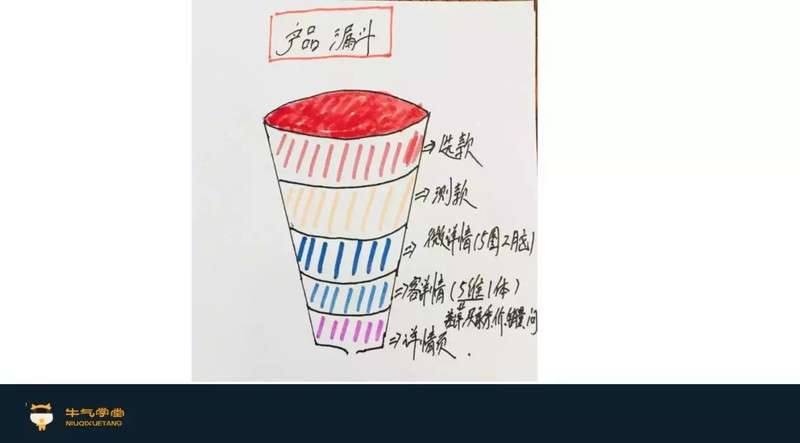 产品漏斗
⇒选款
⇒测款
⇒微详情(5图2月
⇒客详情(5维1体)
价.销量.问
⇒详情页.
牛气学堂
NIUQIXUETANG